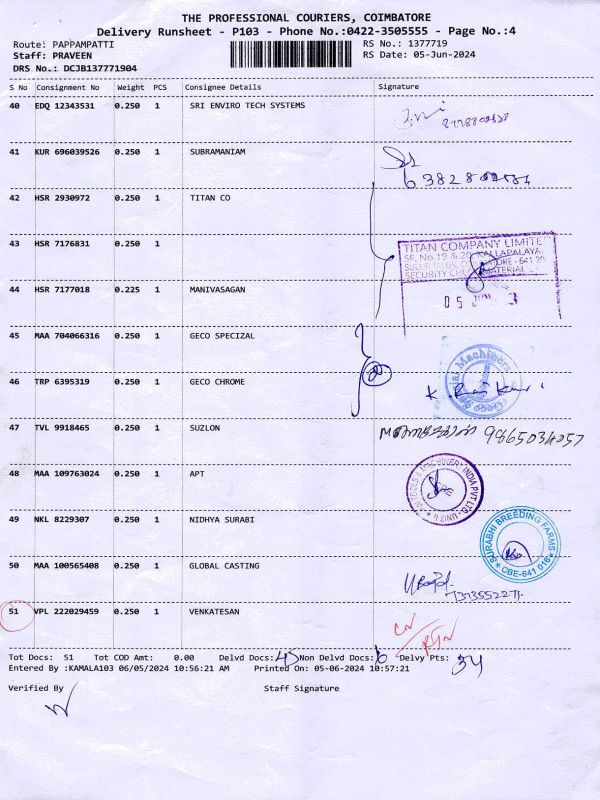 THE PROFESSIONAL COURIERS, COIMBATORE
Delivery Runsheet - P103 - Phone No.:0422-3505555 - Page No.:4
Route: PAPPAMPATTI RS No.: 1377719
Staff: PRAVEEN RS Date: 05-Jun-2024
DRS No.: DCJB137771904
S No Consignment No Weight PCS Consignee Details Signature
40 EDQ 12343531 0.250 1 SRI ENVIRO TECH SYSTEMS
41 KUR 696039526 0.250 1 SUBRAMANIAM
42 HSR 2930972 0.250 1 TITAN CO
43 HSR 7176831 0.250 1
TITAN COMPANY LIMITED
SF. No.19 & 20, KALLAPALAYA
SECURITY MATERIAL
05
44 HSR 7177018 0.225 1 MANIVASAGAN
45 MAA 704066316 0.250 1 GECO SPECIZAL
46 TRP 6395319 0.250 1 GECO CHROME
47 TVL 9918465 0.250 1 SUZLON 9865034057
48 MAA 109763024 0.250 1 APT
TOOLS & MACHINERY INDIA PVT LTD
49 NKL 8229307 0.250 1 NIDHYA SURABI
SURABHI BREEDING FARMS
CBE-641 016
50 MAA 100565408 0.250 1 GLOBAL CASTING
7313552271
51 VPL 222029459 0.250 1 VENKATESAN
CN
Tot Docs: 51 Tot COD Amt: 0.00 Delvd Docs: 45 Non Delvd Docs: 6 Delvy Pts: 34
Entered By :KAMALA103 06/05/2024 10:56:21 AM Printed On: 05-06-2024 10:57:21
Verified By Staff Signature